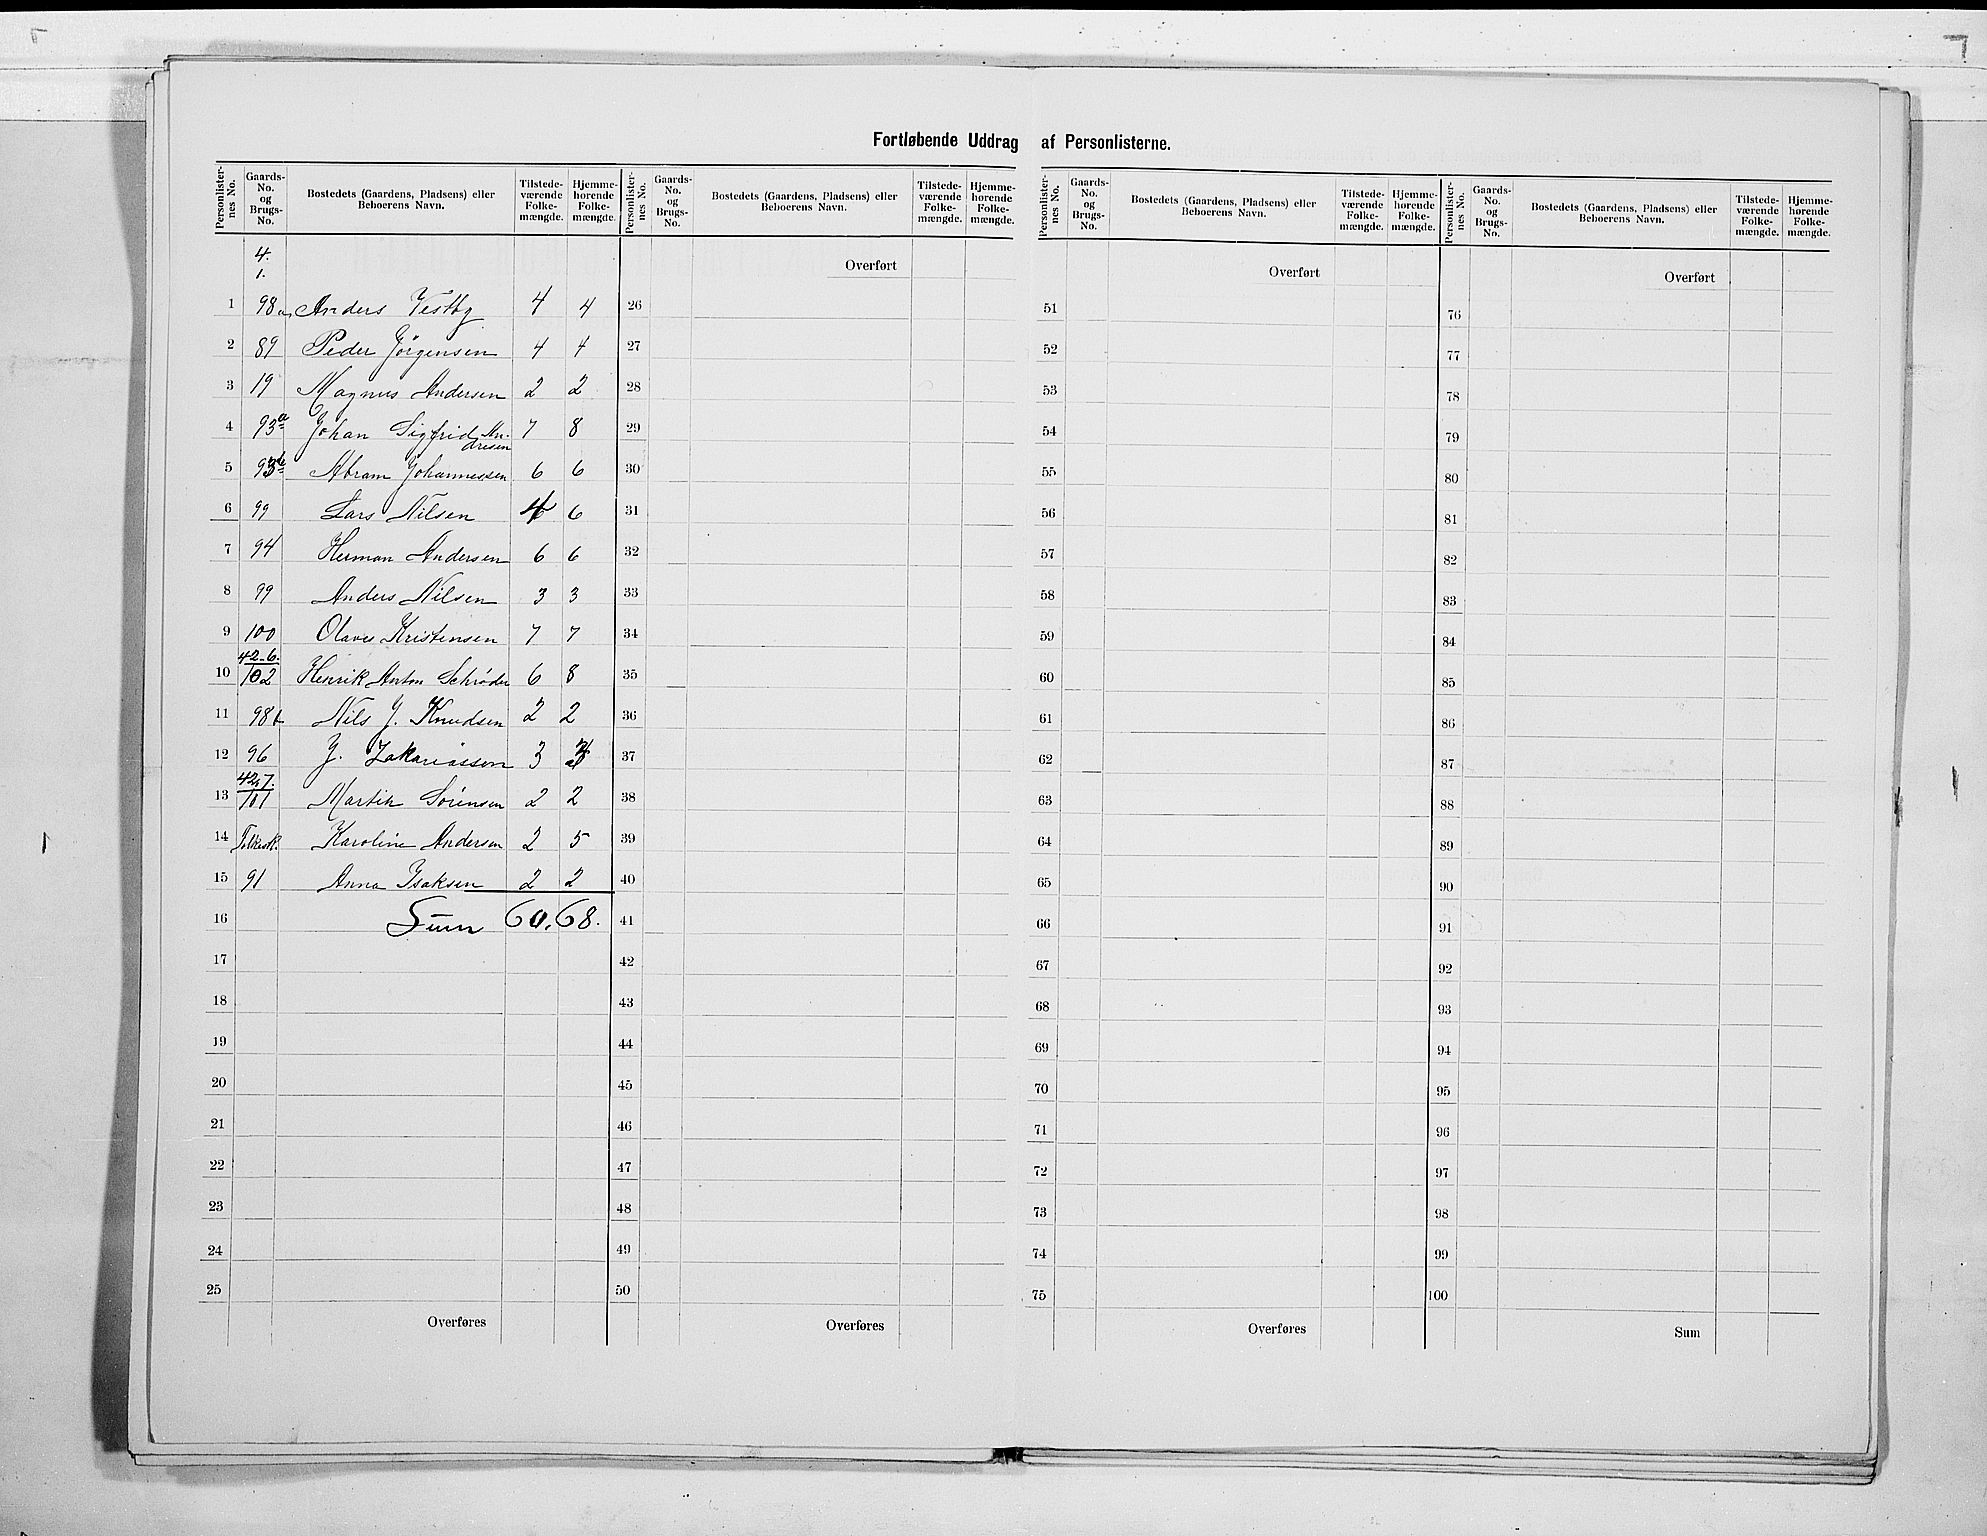 Fortløbende Uddrag af Personlisterne.
Personlister- nes No. | Gaards- No. og Brugs- No. | Bostedets (Gaardens, Pladsens) eller Beboerens Navn. | Tilstede- værende Folke- mængde. | Hjemme- hørende Folke- mængde.
4.
1.
1 98a Anders Vestby 4 4
2 89 Peder Jörgensen 4 4
3 19 Magnus Andersen 2 2
4 93a Johan Sigfrid An-
dresen 7 8
5 93b Abram Johannessen 6 6
6 99 Lars Nilsen 4 6
7 94 Herman Andersen 6 6
8 99 Anders Nilsen 3 3
9 100 Olaves Kristensen 7 7
42-6.
10 102 Henrik Anton Schrøder 6 8
11 98b Nils J. Knudsen 2 2
12 96 J. Zakariassen 3 3
42,7.
13 101 Martin Sörensen 2 2
14 Folkestk. Karoline Andersen 2 5
15 91 Anna Isaksen 2 2
16 Sum 60. 68.
17
18
19
20
21
22
23
24
25
Overføres
Personlister- nes No. | Gaards- No. og Brugs- No. | Bostedets (Gaardens, Pladsens) eller Beboerens Navn. | Tilstede- værende Folke- mængde. | Hjemme- hørende Folke- mængde.
Overført
26
27
28
29
30
31
32
33
34
35
36
37
38
39
40
41
42
43
44
45
46
47
48
49
50
Overføres
Personlister- nes No. | Gaards- No. og Brugs- No. | Bostedets (Gaardens, Pladsens) eller Beboerens Navn. | Tilstede- værende Folke- mængde. | Hjemme- hørende Folke- mængde.
Overført
51
52
53
54
55
56
57
58
59
60
61
62
63
64
65
66
67
68
69
70
71
72
73
74
75
Overføres
Personlister- nes No. | Gaards- No. og Brugs- No. | Bostedets (Gaardens, Pladsens) eller Beboerens Navn. | Tilstede- værende Folke- mængde. | Hjemme- hørende Folke- mængde.
Overført
76
77
78
79
80
81
82
83
84
85
86
87
88
89
90
91
92
93
94
95
96
97
98
99
100
Sum